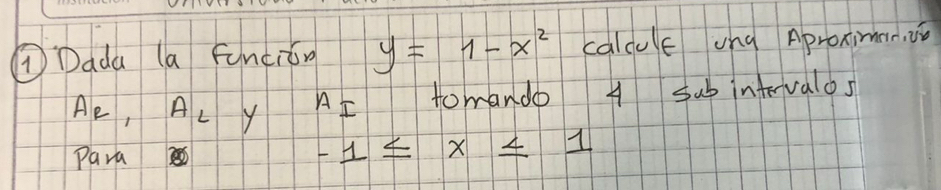 ① Dada la función y = 1 - x² calcule una Aproximación
AR, AL y AI tomando 4 sub intervalos
para -1 ≤ x ≤ 1